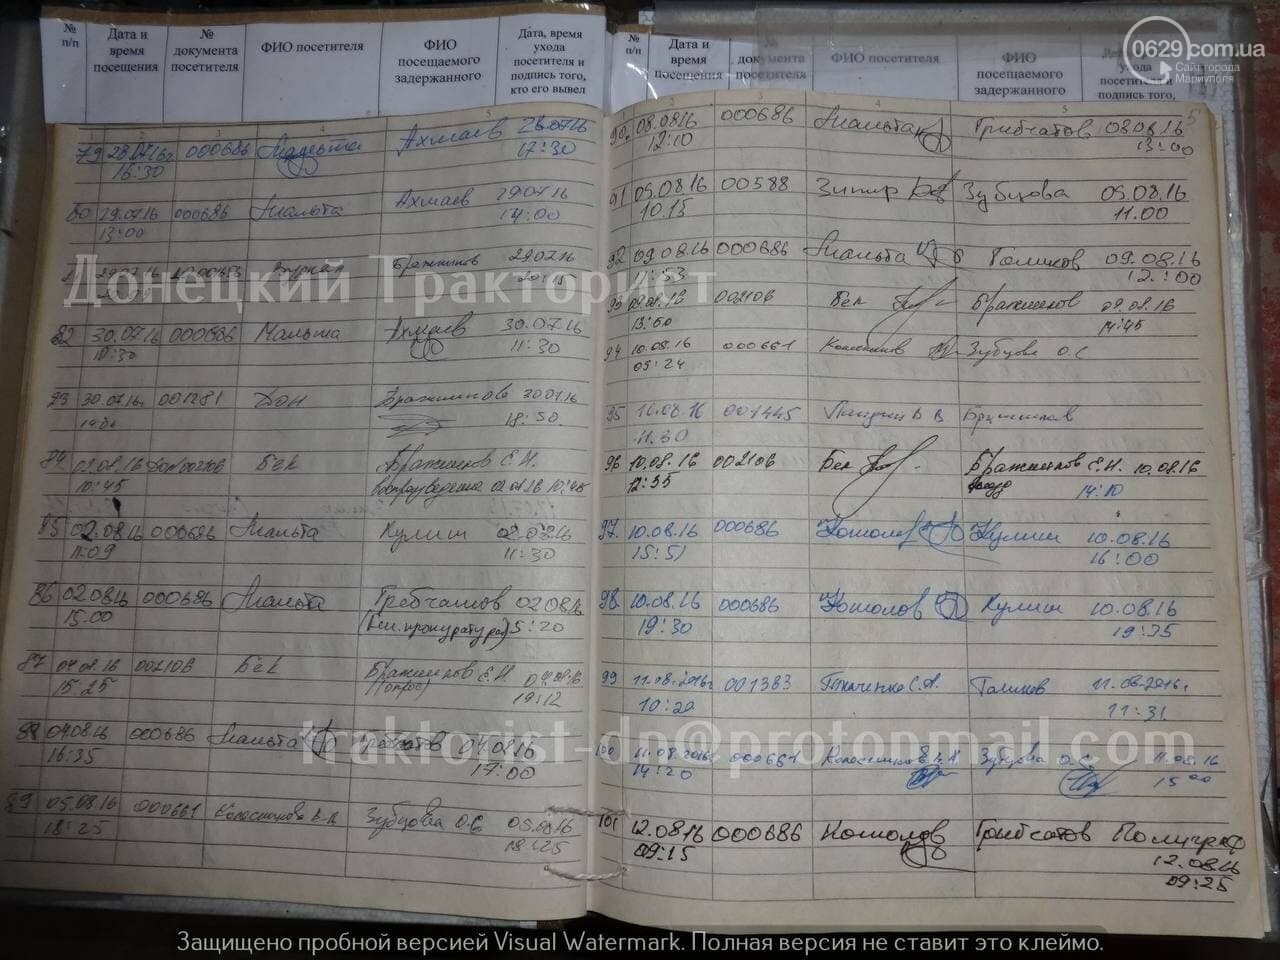 № п/п
Дата и время посещения
№ документа посетителя
ФИО посетителя
ФИО посещаемого задержанного
Дата, время ухода посетителя и подпись того, кто его вывел
79 28.07.16г 000686 Мальта Ахмаев 28.07.16
16:30 17:30
80 29.07.16 000686 Мальта Ахмаев 29.07.16
13:00 14:00
Бражников 29.07.16
82 30.07.16 000686 Мальта Ахмаев 30.07.16
10:30 11:30
83 30.07.16г 001281 Дон Бражников 30.07.16
18:50
84 02.08.16 Бек Бражников Е.Н.
10:45 02.08.16 10:45
85 02.08.16 000686 Мальта Кулиш 02.08.16
11:09 11:30
86 02.08.16 000686 Мальта Гребчатов 02.08.16
15.00 (Ген.прокуратура) 15:20
87 04.08.16 002106 Бек Бражников Е.Н. 04.08.16
15:25 (опрос) 19:12
88 04.08.16 000686 Мальта Гребчатов 04.08.16
16:35 17:00
89 05.08.16 000661 Зубцова О.С 05.08.16
18:25 18:25
№ п/п
Дата и время посещения
документа посетителя
ФИО посетителя
ФИО посещаемого задержанного
ухода посетителя и подпись того,
90 08.08.16 000686 Мальта Грибчатов 08.08.16
12:10 13:00
91 09.08.16 00588 Зубцова 09.08.16
10.15 11.00
92 09.08.16 000686 Мальта Голиков 09.08.16
11:53 12:00
93 09.08.16 002106 Бек Бражников 09.08.16
14:45
94 10.08.16 000661 Зубцова О.С
09:24
95 10.08.16 001445
11.30
96 10.08.16 002106 Бек Бражников Е.Н. 10.08.16
12:35 14:10
97. 10.08.16 000686 Кошолов Кулиш 10.08.16
15:51 16:00
98 10.08.16 000686 Кошолов Кулиш 10.08.16
19:30 19:35
99 11.08.2016г 001383 Ткаченко С.А. Голиков 11.08.2016г.
10:20 11:31
100 11.08.2016г 000661 Зубцова О.С. 11.08.16
14:20 15 00
101 12.08.16 000686 Кошолов Грибчатов
09:15 12.08.16
09:25
0629.com.ua
Сайт города
Мариуполя
Донецкий Тракторист
traktorist-dn@protonmail.com
Защищено пробной версией Visual Watermark. Полная версия не ставит это клеймо.